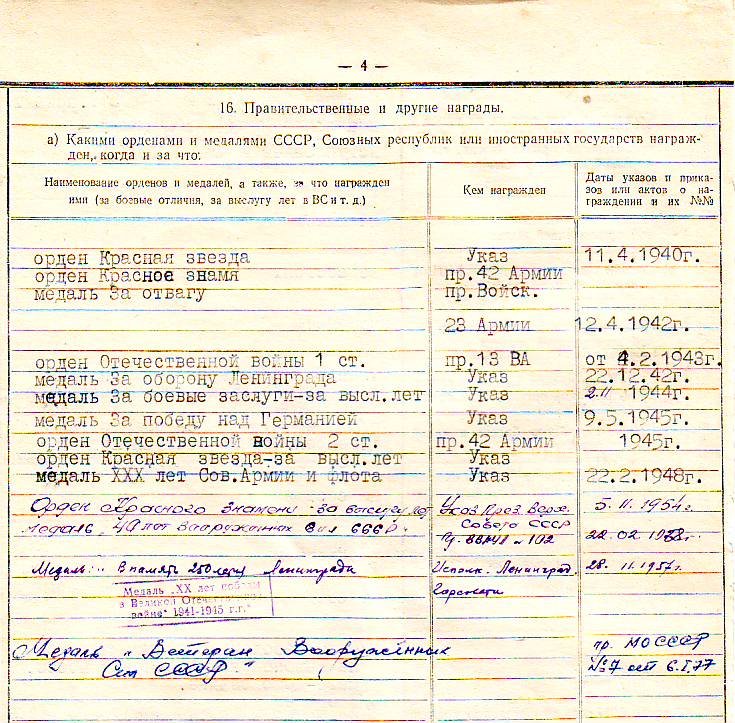 — 4 —
16. Правительственные и другие награды.
а) Какими орденами и медалями СССР, Союзных республик или иностранных государств награж-
ден, когда и за что:
Наименование орденов и медалей, а также, за что награжден
ими (за боевые отличия, за выслугу лет в ВС и т. д.)
Кем награжден
Даты указов и прика-
зов или актов о на-
граждении и их №№
орден Красная звезда Указ 11.4.1940г.
орден Красное знамя пр.42 Армии
медаль За отвагу пр.Войск.
23 Армии 12.4.1942г.
орден Отечественной войны 1 ст. пр.13 ВА от 4.2.1943г.
медаль За оборону Ленинграда Указ 22.12.42г.
медаль За боевые заслуги-за высл.лет Указ 2.11 1944г.
медаль За победу над Германией Указ 9.5.1945г.
орден Отечественной войны 2 ст. пр.42 Армии 1945г.
орден Красная звезда-за высл.лет Указ
медаль XXX лет Сов.Армии и флота Указ 22.2.1948г.
Орден Красного знамени - за выслугу лет Указ През. Верх. 5.11.1954г.
Совета СССР
медаль "40 лет Вооруженных Сил СССР" 22.02.1958г.
Медаль: "В память 250 летия Ленинграда Исполк. Ленинград. 28.11.1957г.
Горсовета
Медаль „XX лет победы
в Великой Отечественной
войне" 1941-1945 г.г."
Медаль „Ветеран Вооружённых пр. МО СССР
Сил СССР." №7 от 6.I.77